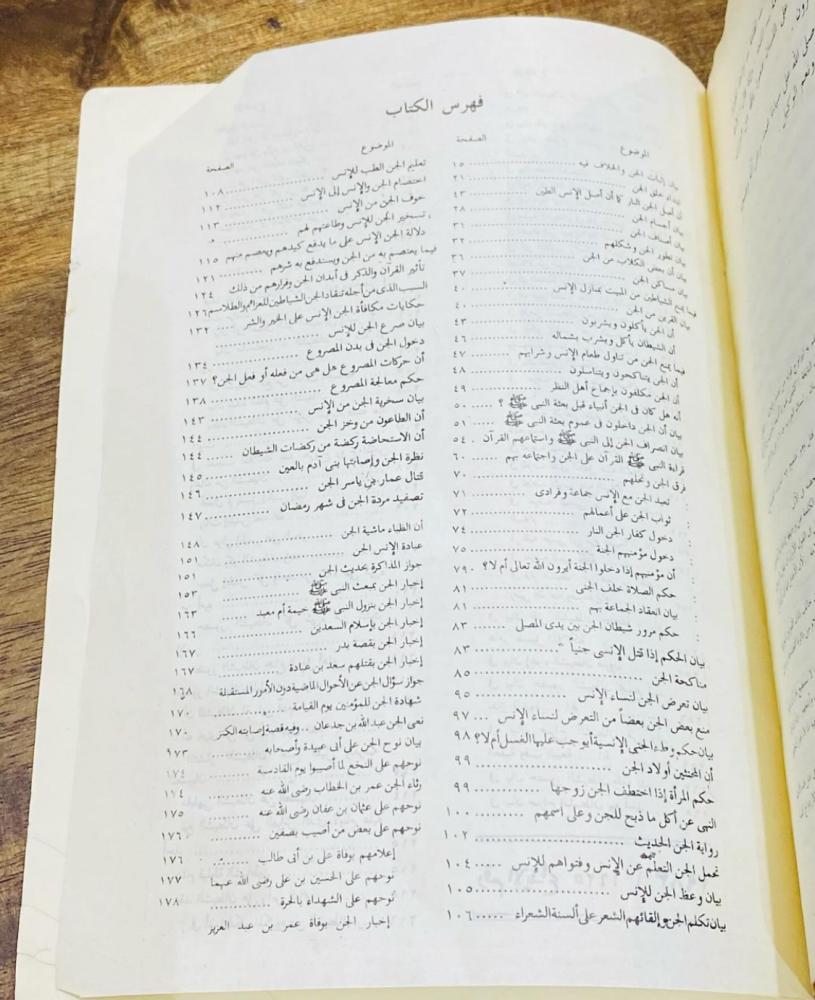 فهرس الكتاب
الموضوع الصفحة
بيان إثبات الجن والخلاف فيه ١٥
ابتداء خلق الجن ٢١
أن أصل الجن النار كما أن أصل الإنس الطين ٤٣
بيان أجسام الجن ٢٨
بيان أصناف الجن ٣١
بيان تطور الجن وشكلهم ٣٢
بيان أن بعض الكلاب من الجن ٣٦
بيان مساكن الجن ٣٧
فيما يمنع الشياطين من المبيت بمنازل الإنس ٤٠
بيان القرين من الجن ٤٠
أن الجن يأكلون ويشربون ٤٣
أن الشيطان يأكل ويشرب بشماله ٤٦
فيما يمنع الجن من تناول طعام الإنس وشرابهم ٤٧
أن الجن يتناكحون ويتناسلون ٤٨
أن الجن مكلفون بإجماع أهل النظر ٤٩
أنه هل كان فى الجن أنبياء قبل بعثة النبى ﷺ ؟ ٥٠
بيان أن الجن داخلون فى عموم بعثة النبى ﷺ ٥١
بيان انصراف الجن إلى النبى ﷺ واستماعهم القرآن ٥٤
قراءة النبى ﷺ القرآن على الجن واجتماعه بهم ٦٠
فرق الجن ونحلهم ٧٠
تعبد الجن مع الإنس جماعة وفرادى ٧١
ثواب الجن على أعمالهم ٧٢
دخول كفار الجن النار ٧٤
دخول مؤمنيهم الجنة ٧٥
أن مؤمنيهم إذا دخلوا الجنة أيرون الله تعالى أم لا؟ ٧٩
حكم الصلاة خلف الجنى ٨١
بيان انعقاد الجماعة بهم ٨١
حكم مرور شيطان الجن بين يدى المصلى ٨٣
بيان الحكم إذا قتل الإنسى جنياً ٨٣
مناكحة الجن ٨٥
بيان تعرض الجن لنساء الإنس ٩٥
منع بعض الجن بعضاً من التعرض لنساء الإنس ٩٧
بيان حكم وطء الجنى الإنسية أيوجب عليها الغسل أم لا؟ ٩٨
أن المخنثين أولاد الجن ٩٩
حكم المرأة إذا اختطف الجن زوجها ٩٩
النهى عن أكل ما ذبح للجن وعلى اسمهم ١٠٠
رواية الجن الحديث ١٠٢
تحمل الجن التعلم عن الإنس وفتواهم للإنس ١٠٤
بيان وعظ الجن للإنس ١٠٥
بيان تكلم الجن وإلقائهم الشعر على ألسنة الشعراء ١٠٦
الموضوع الصفحة
تعليم الجن الطب للإنس ١٠٨
اختصام الجن والإنس إلى الإنس ١١٢
خوف الجن من الإنس ١١٣
تسخير الجن للإنس وطاعتهم لهم
دلالة الجن الإنس على ما يدفع كيدهم ويعصم منهم ١١٥
فيما يعتصم به من الجن ويستدفع به شرهم ١٢١
تأثير القرآن والذكر فى أبدان الجن وفرارهم من ذلك ١٢٤
السبب الذى من أجله تنقاد الجن الشياطين للعزائم والطلاسم ١٢٦
حكايات مكافأة الجن الإنس على الخير والشر ١٣٢
بيان صرع الجن للإنس
دخول الجن فى بدن المصروع ١٣٤
أن حركات المصروع هل هى من فعله أو فعل الجن؟ ١٣٧
حكم معالجة المصروع ١٣٨
بيان سخرية الجن من الإنس ١٤٣
أن الطاعون من وخز الجن ١٤٤
أن الاستحاضة ركضة من ركضات الشيطان ١٤٤
نظرة الجن وإصابتها بنى آدم بالعين ١٤٥
قتال عمار بن ياسر الجن ١٤٦
تصفيد مردة الجن فى شهر رمضان ١٤٧
أن الظباء ماشية الجن ١٤٨
عبادة الإنس الجن ١٥١
جواز المذاكرة بحديث الجن ١٥١
إخبار الجن بمبعث النبى ﷺ ١٥٣
إخبار الجن بنزول النبى ﷺ خيمة أم معبد ١٦٣
إخبار الجن بإسلام السعدين ١٦٦
إخبار الجن بقصة بدر ١٦٧
إخبار الجن بقتلهم سعد بن عبادة ١٦٧
جواز سؤال الجن عن الأحوال الماضية دون الأمور المستقبلة ١٦٨
شهادة الجن للمؤمنين يوم القيامة ١٧٠
نعى الجن عبد الله بن جدعان .. وفيه قصة إصابته الكنز ١٧٠
بيان نوح الجن على أبى عبيدة وأصحابه ٩٧٣
نوحهم على النخع لما أصيبوا يوم القادسية ١٧٤
رثاء الجن عمر بن الخطاب رضى الله عنه ١٧٤
نوحهم على عثمان بن عفان رضى الله عنه ١٧٥
نوحهم على بعض من أصيب بصفين ١٧٦
إعلامهم بوفاة على بن أبى طالب ١٧٦
نوحهم على الحسين بن على رضى الله عنهما ١٧٧
نوحهم على الشهداء بالحرة ١٧٨
إخبار الجن بوفاة عمر بن عبد العزيز